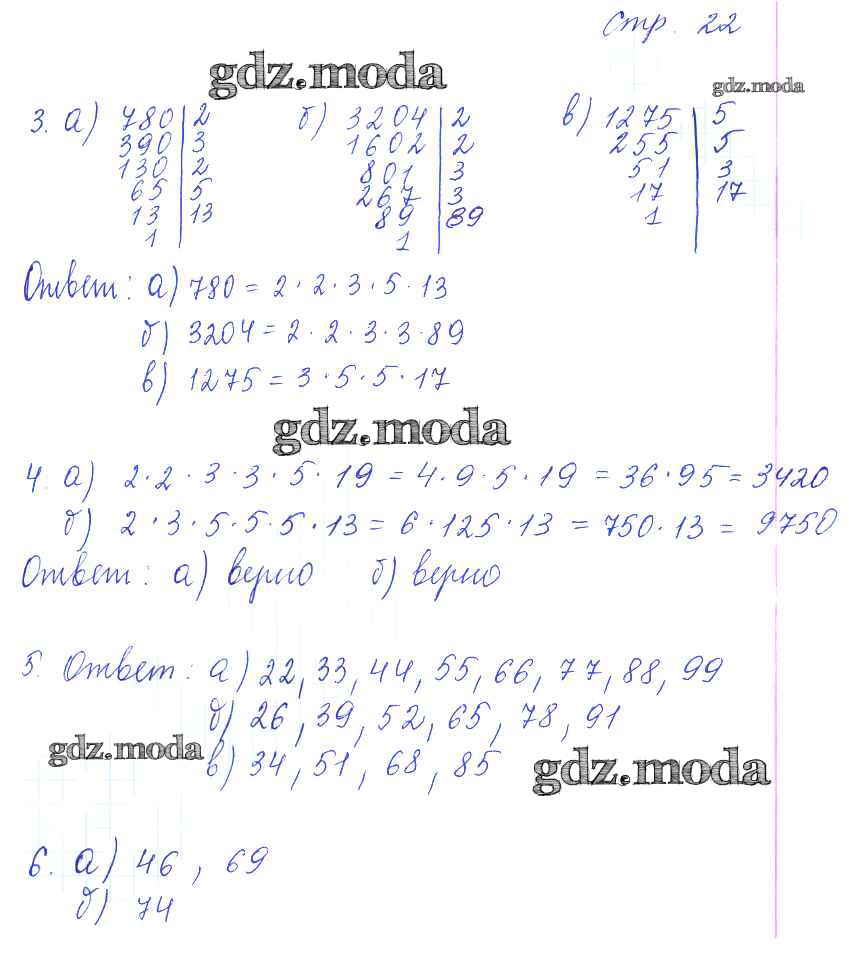 Стр. 22
gdz.moda
gdz.moda
3. а) 780 | 2 б) 3204 | 2 в) 1275 | 5
390 | 3 1602 | 2 255 | 5
130 | 2 801 | 3 51 | 3
65 | 5 267 | 3 17 | 17
13 | 13 89 | 89 1
1 1
Ответ: а) 780 = 2 · 2 · 3 · 5 · 13
б) 3204 = 2 · 2 · 3 · 3 · 89
в) 1275 = 3 · 5 · 5 · 17
gdz.moda
4. а) 2 · 2 · 3 · 3 · 5 · 19 = 4 · 9 · 5 · 19 = 36 · 95 = 3420
б) 2 · 3 · 5 · 5 · 5 · 13 = 6 · 125 · 13 = 750 · 13 = 9750
Ответ: а) верно б) верно
5. Ответ: а) 22, 33, 44, 55, 66, 77, 88, 99
б) 26, 39, 52, 65, 78, 91
gdz.moda
в) 34, 51, 68, 85
gdz.moda
6. а) 46, 69
б) 74